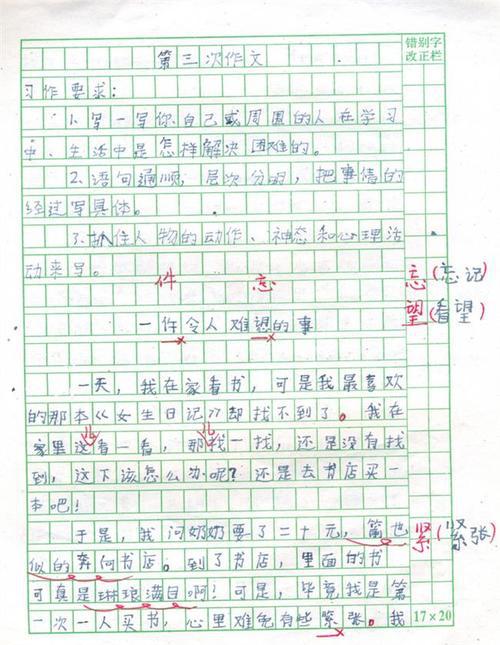 错别字
改正栏
第三次作文
习作要求:
1、写一写你、自己或周围的人在学习
中、生活中是怎样解决困难的。
2、语句通顺,层次分明,把事情的
经过写具体。
3、抓住人物的动作、神态和心理活
动来写。
件 忘
忘(忘记)
望(看望)
一件令人难望的事
一天,我在家看书,可是我最喜欢
的那本《女生日记》却找不到了。我在
家里这看一看,那找一找,还是没有找
到,这下该怎么办呢?还是去书店买一
本吧!
于是,我问奶奶要了二十元,箭也
似的奔向书店。到了书店,里面的书
可真是琳琅满目啊!可是,毕竟我是第
一次一人买书,心里难免有些紧张。我
紧(紧张)
17×20